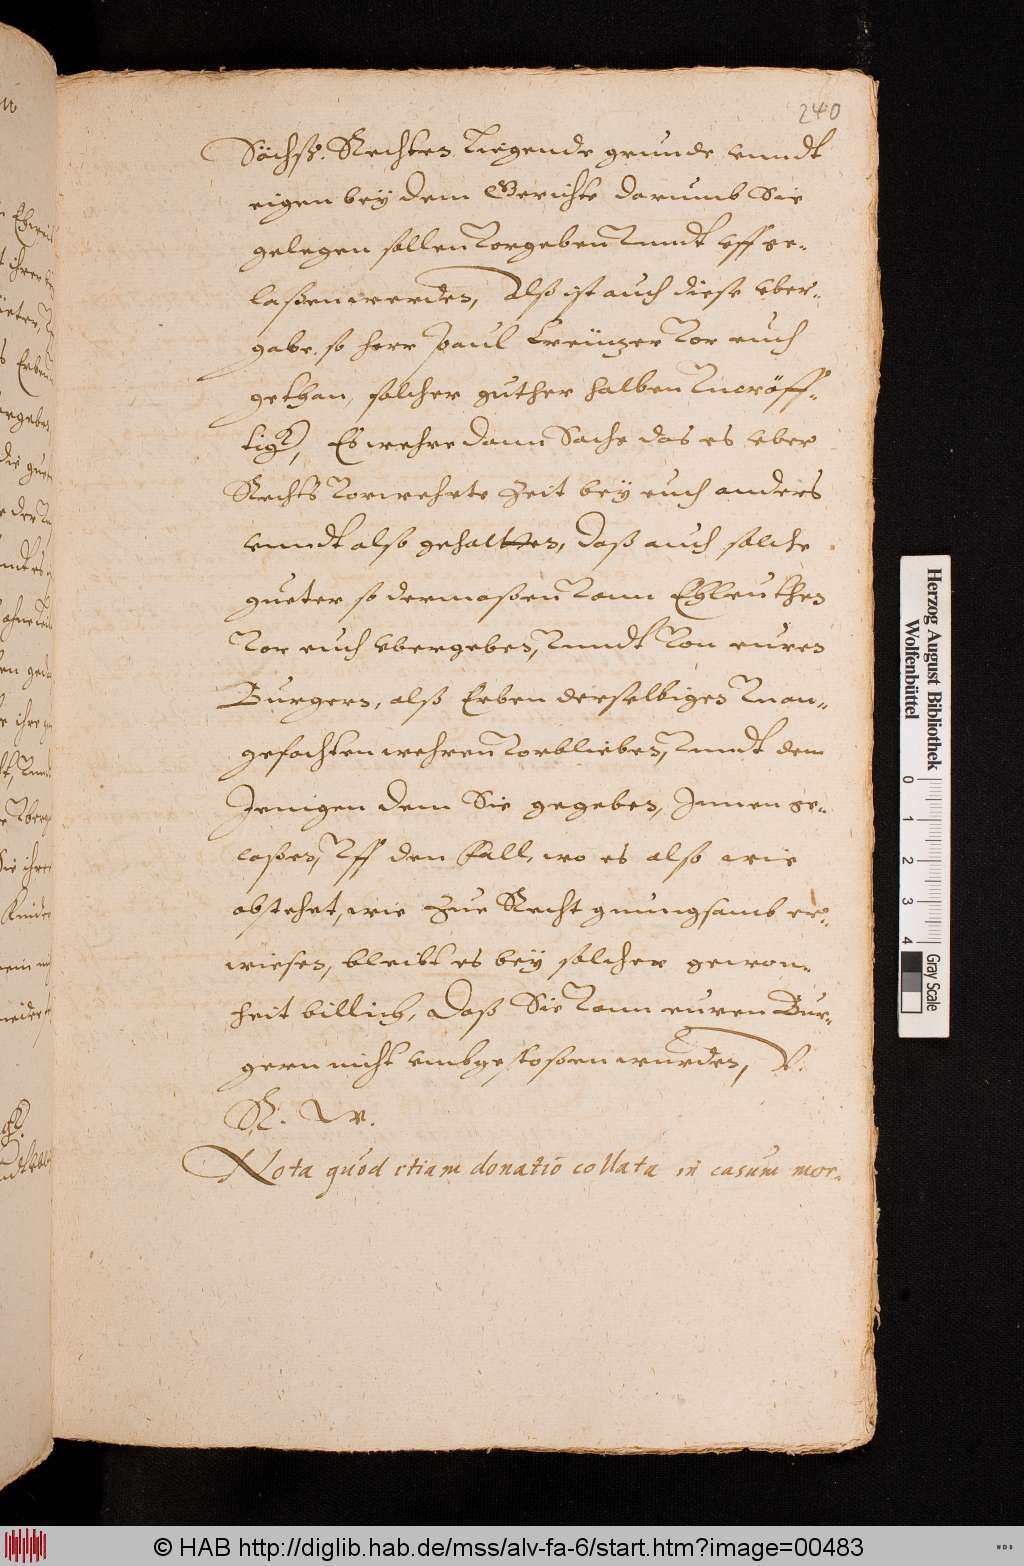 240
Sächß: Rechten Liegende grunde vnndt
eigen bey dem Gerichte darumb Sie
gelegen sollen vorgeben vnndt vff ge-
laßen werden, Alß ist auch diese vber-
gabe so herr Paul Creützer vor euch
gethan, solcher guther halben vncröff-
tigk, Es wehre dann Sache das es vber
Rechts vorwehrte Zeit bey euch anders
vnndt also gehaltten, daß auch solche
gueter so dermaßen vonn Ehleuthen
vor euch vbergeben, vnndt von euren
Burgern, alß Erben derselbigen vnan-
gefochten wehren vorblieben, vnndt dem
Jenigen dem Sie gegeben, Jnnen ge-
laßen, Vff den fall, wo es also wie
obstehet, wie Zue Recht gnungsamb er-
wiesen, bleibt es bey solcher gewon-
heit billich, Daß Sie vonn euren Bur-
gern nicht vmbgestoßen wurden, V.
R. W.
Nota quod etiam donatio collata in casum mor-
Herzog August Bibliothek
Wolfenbüttel
0 1 2 3 4
Gray Scale
© HAB http://diglib.hab.de/mss/alv-fa-6/start.htm?image=00483